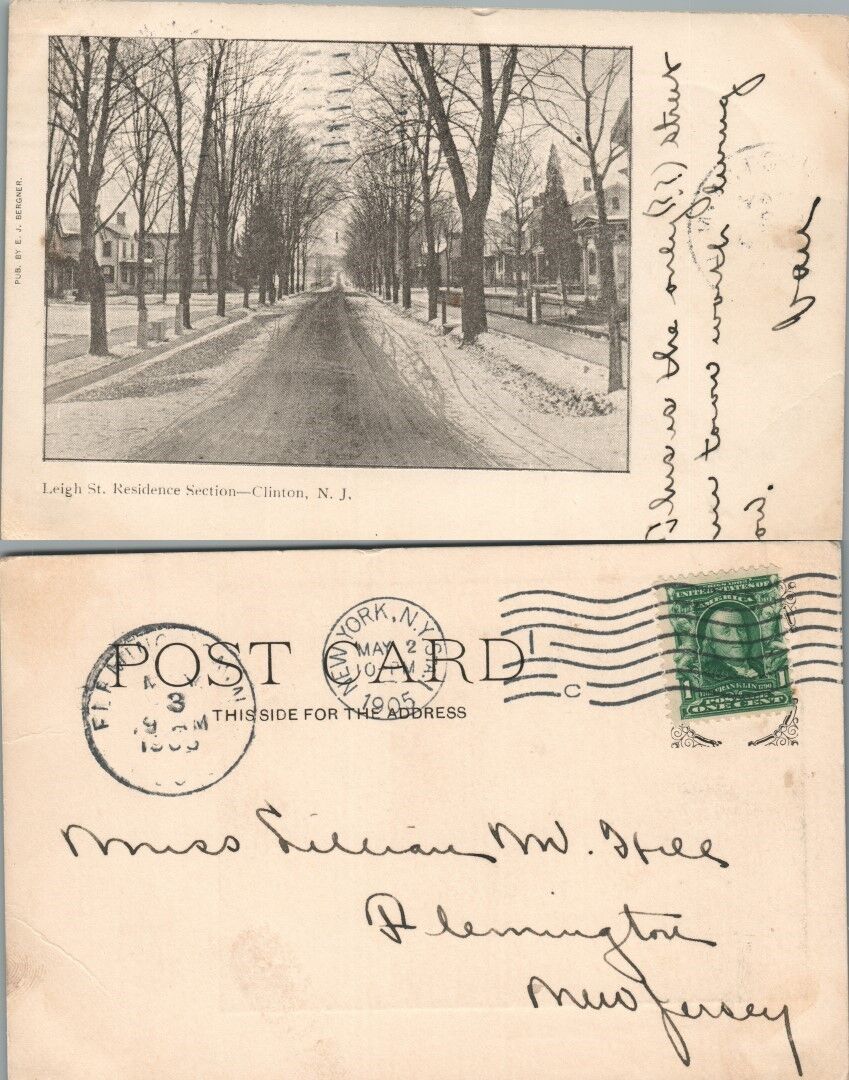 PUB. BY E. J. BERGNER.
Leigh St. Residence Section—Clinton, N. J.
This is the only (?) street
town worth living
on.
POST CARD
THIS SIDE FOR THE ADDRESS
NEW YORK, N.Y. STA.
MAY 2
10 PM
1905
1
C
FLEMINGTON
3
9 AM
1905
UNITED STATES OF
AMERICA
FRANKLIN
1 1
POSTAGE
ONE CENT
Miss Lillian M. Hill
Flemington
New Jersey